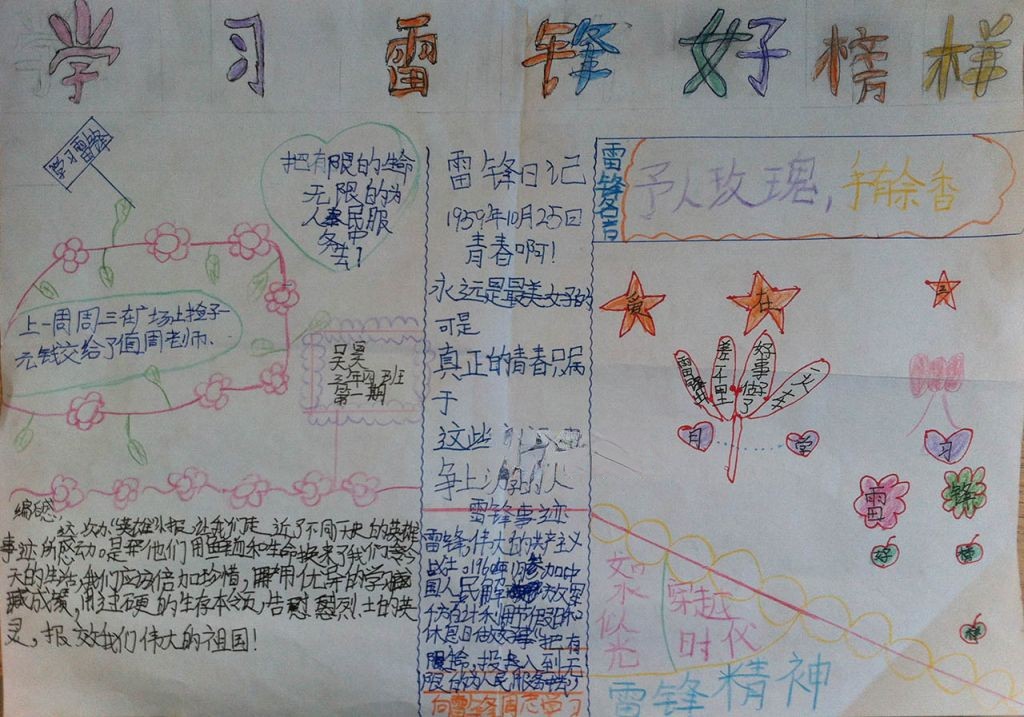 学习雷锋好榜样
学习雷锋
把有限的生命
无限的为
人民服
务中
去!
上一周周三在广场上捡了一
元钱交给了值周老师.
吴昊
三年四班
第一期
编后感:
这次办"英雄"小报,让我们走近了不同历史的英雄
事迹所感动。是他们用血和生命换来了我们今
天的生活,我们应该倍加珍惜,用优异的学
成绩,用过硬的生存本领,告慰烈士的英
灵,报效我们伟大的祖国!
雷锋日记
1959年10月25日
青春啊!
永远是最美好的
可是
真正的青春只属
于
这些
争上游的人
雷锋事迹
雷锋,伟大的共产主义
战士。1960年1月参加中
国人民解放军
休息日做好事 把有
限生命,投入到无
限的为人民服务中去
向雷锋同志学习
雷锋名言
予人玫瑰,手有余香
爱 在 三
月
雷锋
差千里
好事做了
一火车
堂
习
雷 锋
好 榜
样
如水似光
穿越时代
雷锋精神